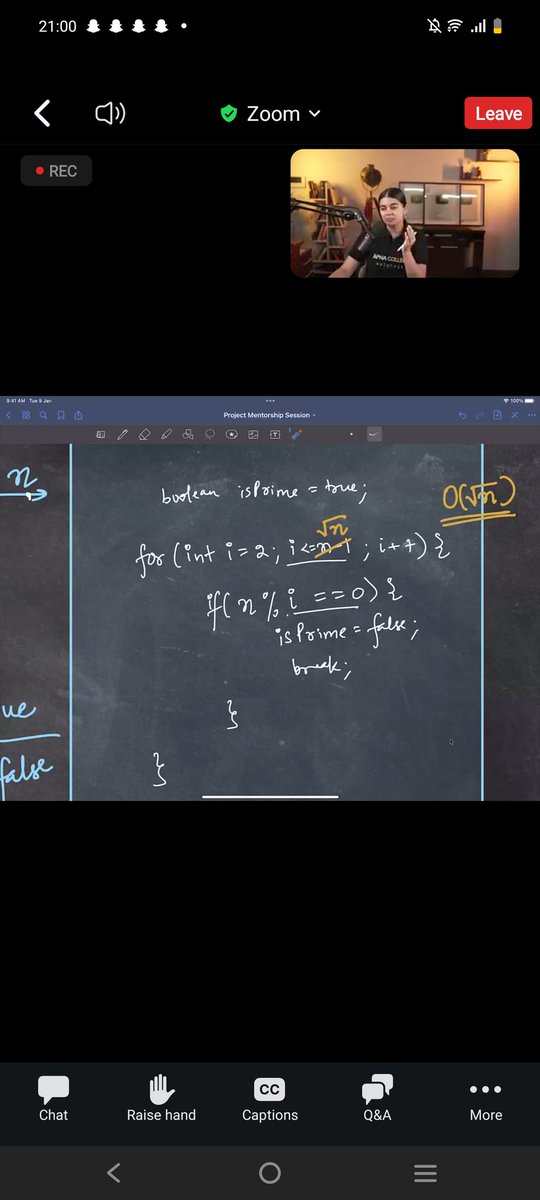 21:00
Zoom
Leave
REC
APNA COLLEGE
9:41 AM Tue 9 Jan
100%
Project Mentorship Session
n
boolean isPrime = true;
O(√n)
√n
for (int i = 2; i <= n-1 ; i++) {
if( n % i == 0) {
isPrime = false;
break;
}
ue
}
false
Chat
Raise hand
CC
Captions
Q&A
More